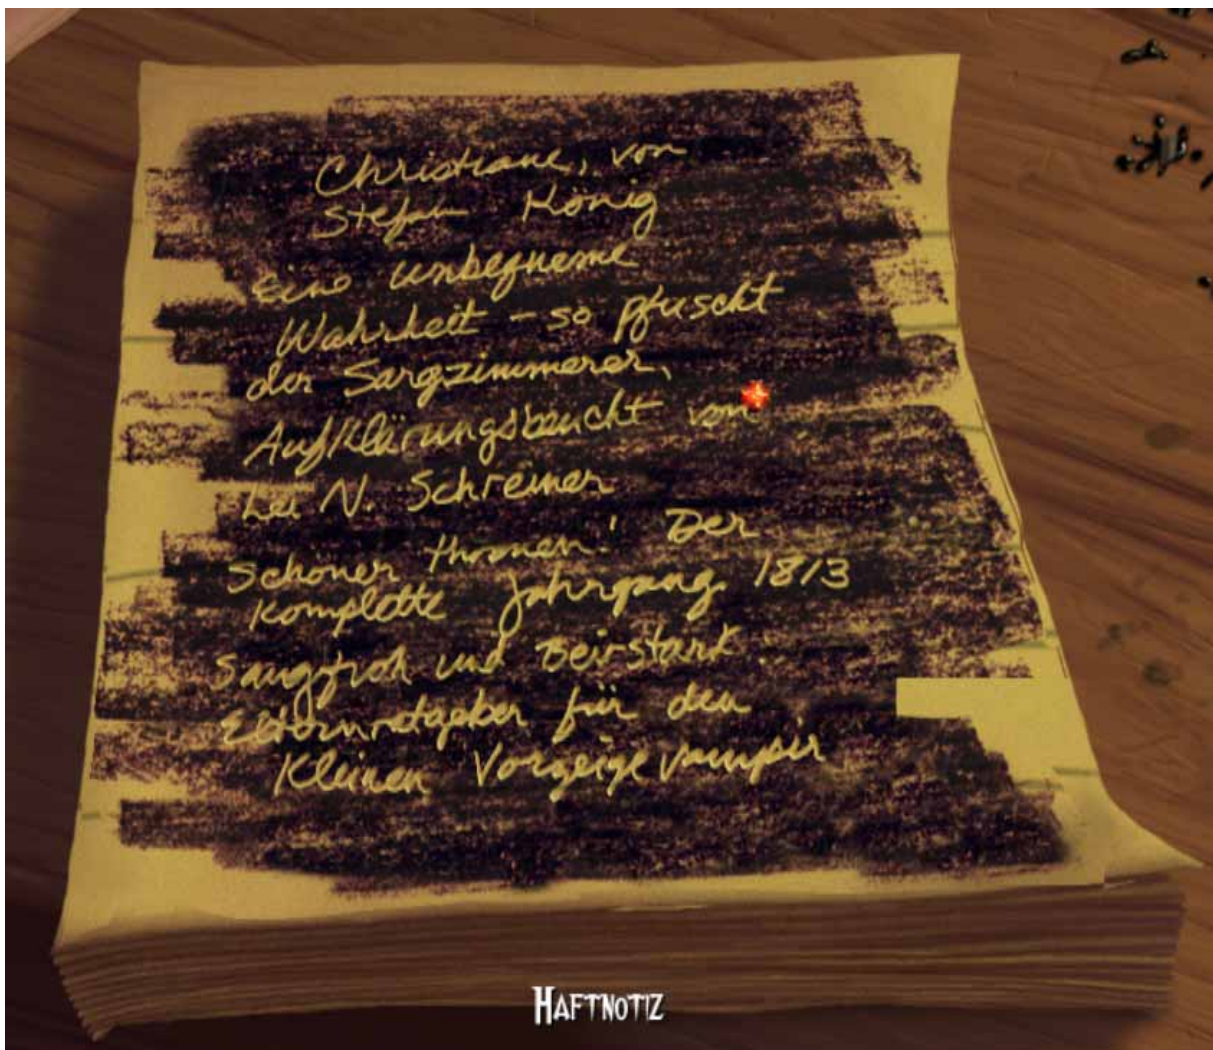 Christiane, von
Stefan König
Eine unbequeme
Wahrheit - so pfuscht
der Sargzimmerer,
Aufklärungsbericht von
Lei N. Schreiner
Schöner thronen! Der
Komplette Jahrgang 1813
Saugfroh und Beisstark
Elternratgeber für den
Kleinen Vorzeigevampir
HAFTNOTIZ